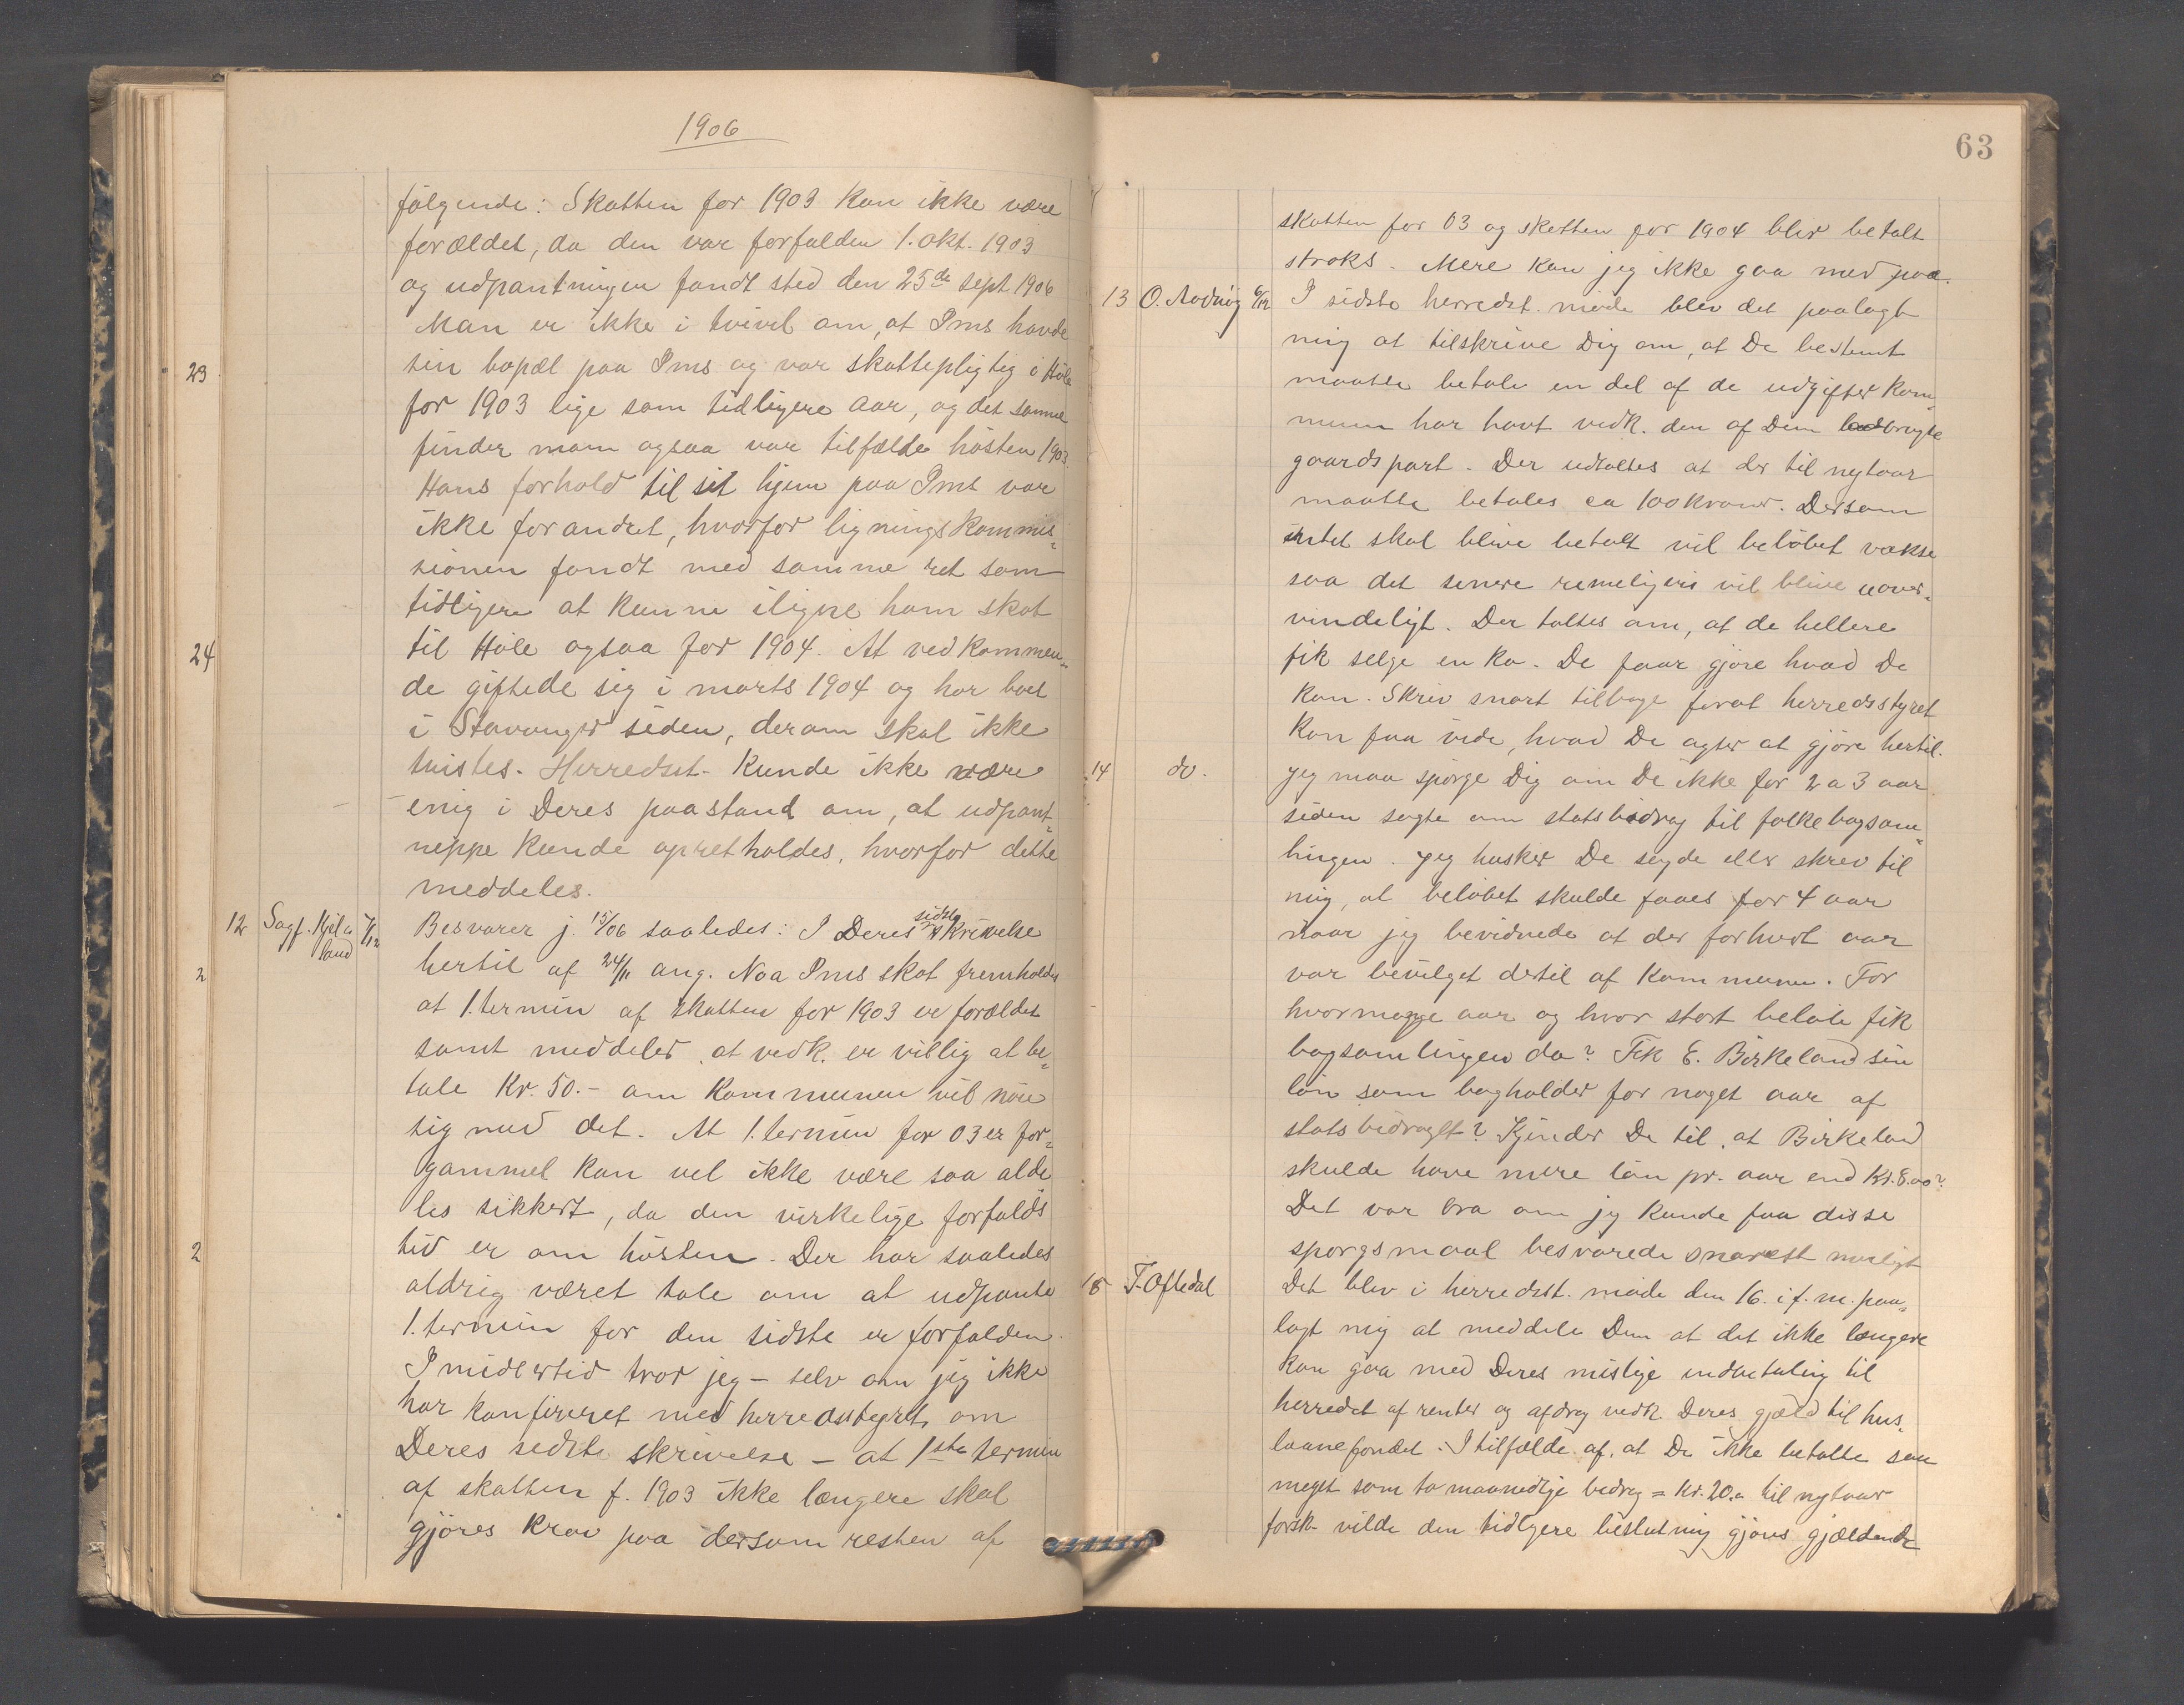 1906
følgende: Skatten for 1903 kan ikke være
forældet, da den var forfalden 1. okt. 1903
og udpantningen fandt sted den 25de sept 1906
Man er ikke i tvivl om, at Ims havde
sin bopæl paa Ims og var skattepligtig i Høle
for 1903 lige som tidligere aar, og det samme
finder mam ogsaa var tilfælde høsten 1903.
Hans forhold til sit hjem paa Ims var
ikke forandret, hvorfor ligningskommis-
sionen fandt med samme ret som
tidligere at kunne iligne ham skat
til Høle ogsaa for 1904. At vedkommen-
de giftede sig i marts 1904 og har boet
i Stavanger siden, derom skal ikke
tvistes. Herredsst. kunde ikke være
enig i Deres paastand om, at udpant-
neppe kunde opretholdes, hvorfor dette
meddeles.
12 Sagf. Kjela
land 7/12
Besvarer j. 15/06 saaledes: I Deres sidste skrivelse
hertil af 24/11 ang. Noa Ims skat fremholdes
at 1. termin af skatten for 1903 er forældet
samt meddeler at vedk. er villig at be-
tale Kr. 50.- om kommunen vil nøie
sig med det. At 1. termin for 03 er for-
gammel kan vel ikke være saa alde
les sikkert, da den virkelige forfalds
tid er om høsten. Der har saaledes
aldrig været tale om at udpante
1. termin før den sidste er forfalden.
Imidlertid tror jeg - selv om jig ikke
har konfereret med herredsstyret om
Deres sidste skrivelse - at 1ste termin
af skatten f. 1903 ikke længere skal
gjøres krav paa dersom resten af
23
24
2
2
63
skatten for 03 og skatten for 1904 blir betalt
straks. Mere kan jeg ikke gaa med paa.
13 O. 6/12 I sidste herredst. møde blev det paalagt
mig at tilskrive Dig om, at De bestemt
maatte betale en del af de udgifter kom-
munen har havt vedk. den af Dem brugte
gaardspart. Der udtaltes at der til nytaar
maatte betales ca 100 kroner. Dersom
intet skal blive betalt vil beløbet vokse
saa det senere rimeligvis vil blive uover-
vindeligt. Der taltes om, at de hellere
fik selge en ko. De faar gjøre hvad De
kan. Skriv snart tilbage forat herredsstyret
kan faa vide, hvad De agter at gjøre hertil.
14 do. Jeg maa spørge Dig om De ikke for 2 a 3 aar
siden søgte om statsbidrag til folkebogsam-
lingen. Jeg husker De sagde eller skrev til
mig, at beløbet skulde faaes for 4 aar
naar jeg bevidnede at der forhvert aar
var bevilget dertil af kommunen. For
hvormange aar og hvor stort beløb fik
bogsamlingen da? Fik E. Birkeland sin
løn som bogholder for noget aar af
statsbidraget? Kjender De til at Birkeland
skulde have mere løn pr. aar end Kr. 8.00?
Det var bra om jeg kunde faa disse
spørgsmaal besvarede snarest muligt
15 T. Oftedal Det blev i herredsst. møde den 16. i f. m. paa-
lagt mig at meddele Dem at det ikke længere
kan gaa med Deres mislige indbetaling til
herredet af renter og afdrag vedk. Deres gjæld til hus-
laanefondet. I tilfælde af, at De ikke betalte saa
meget som to maanedlige bidrag = Kr. 20.- til nytaar
førsk. vilde den tidligere beslutning gjøres gjældende